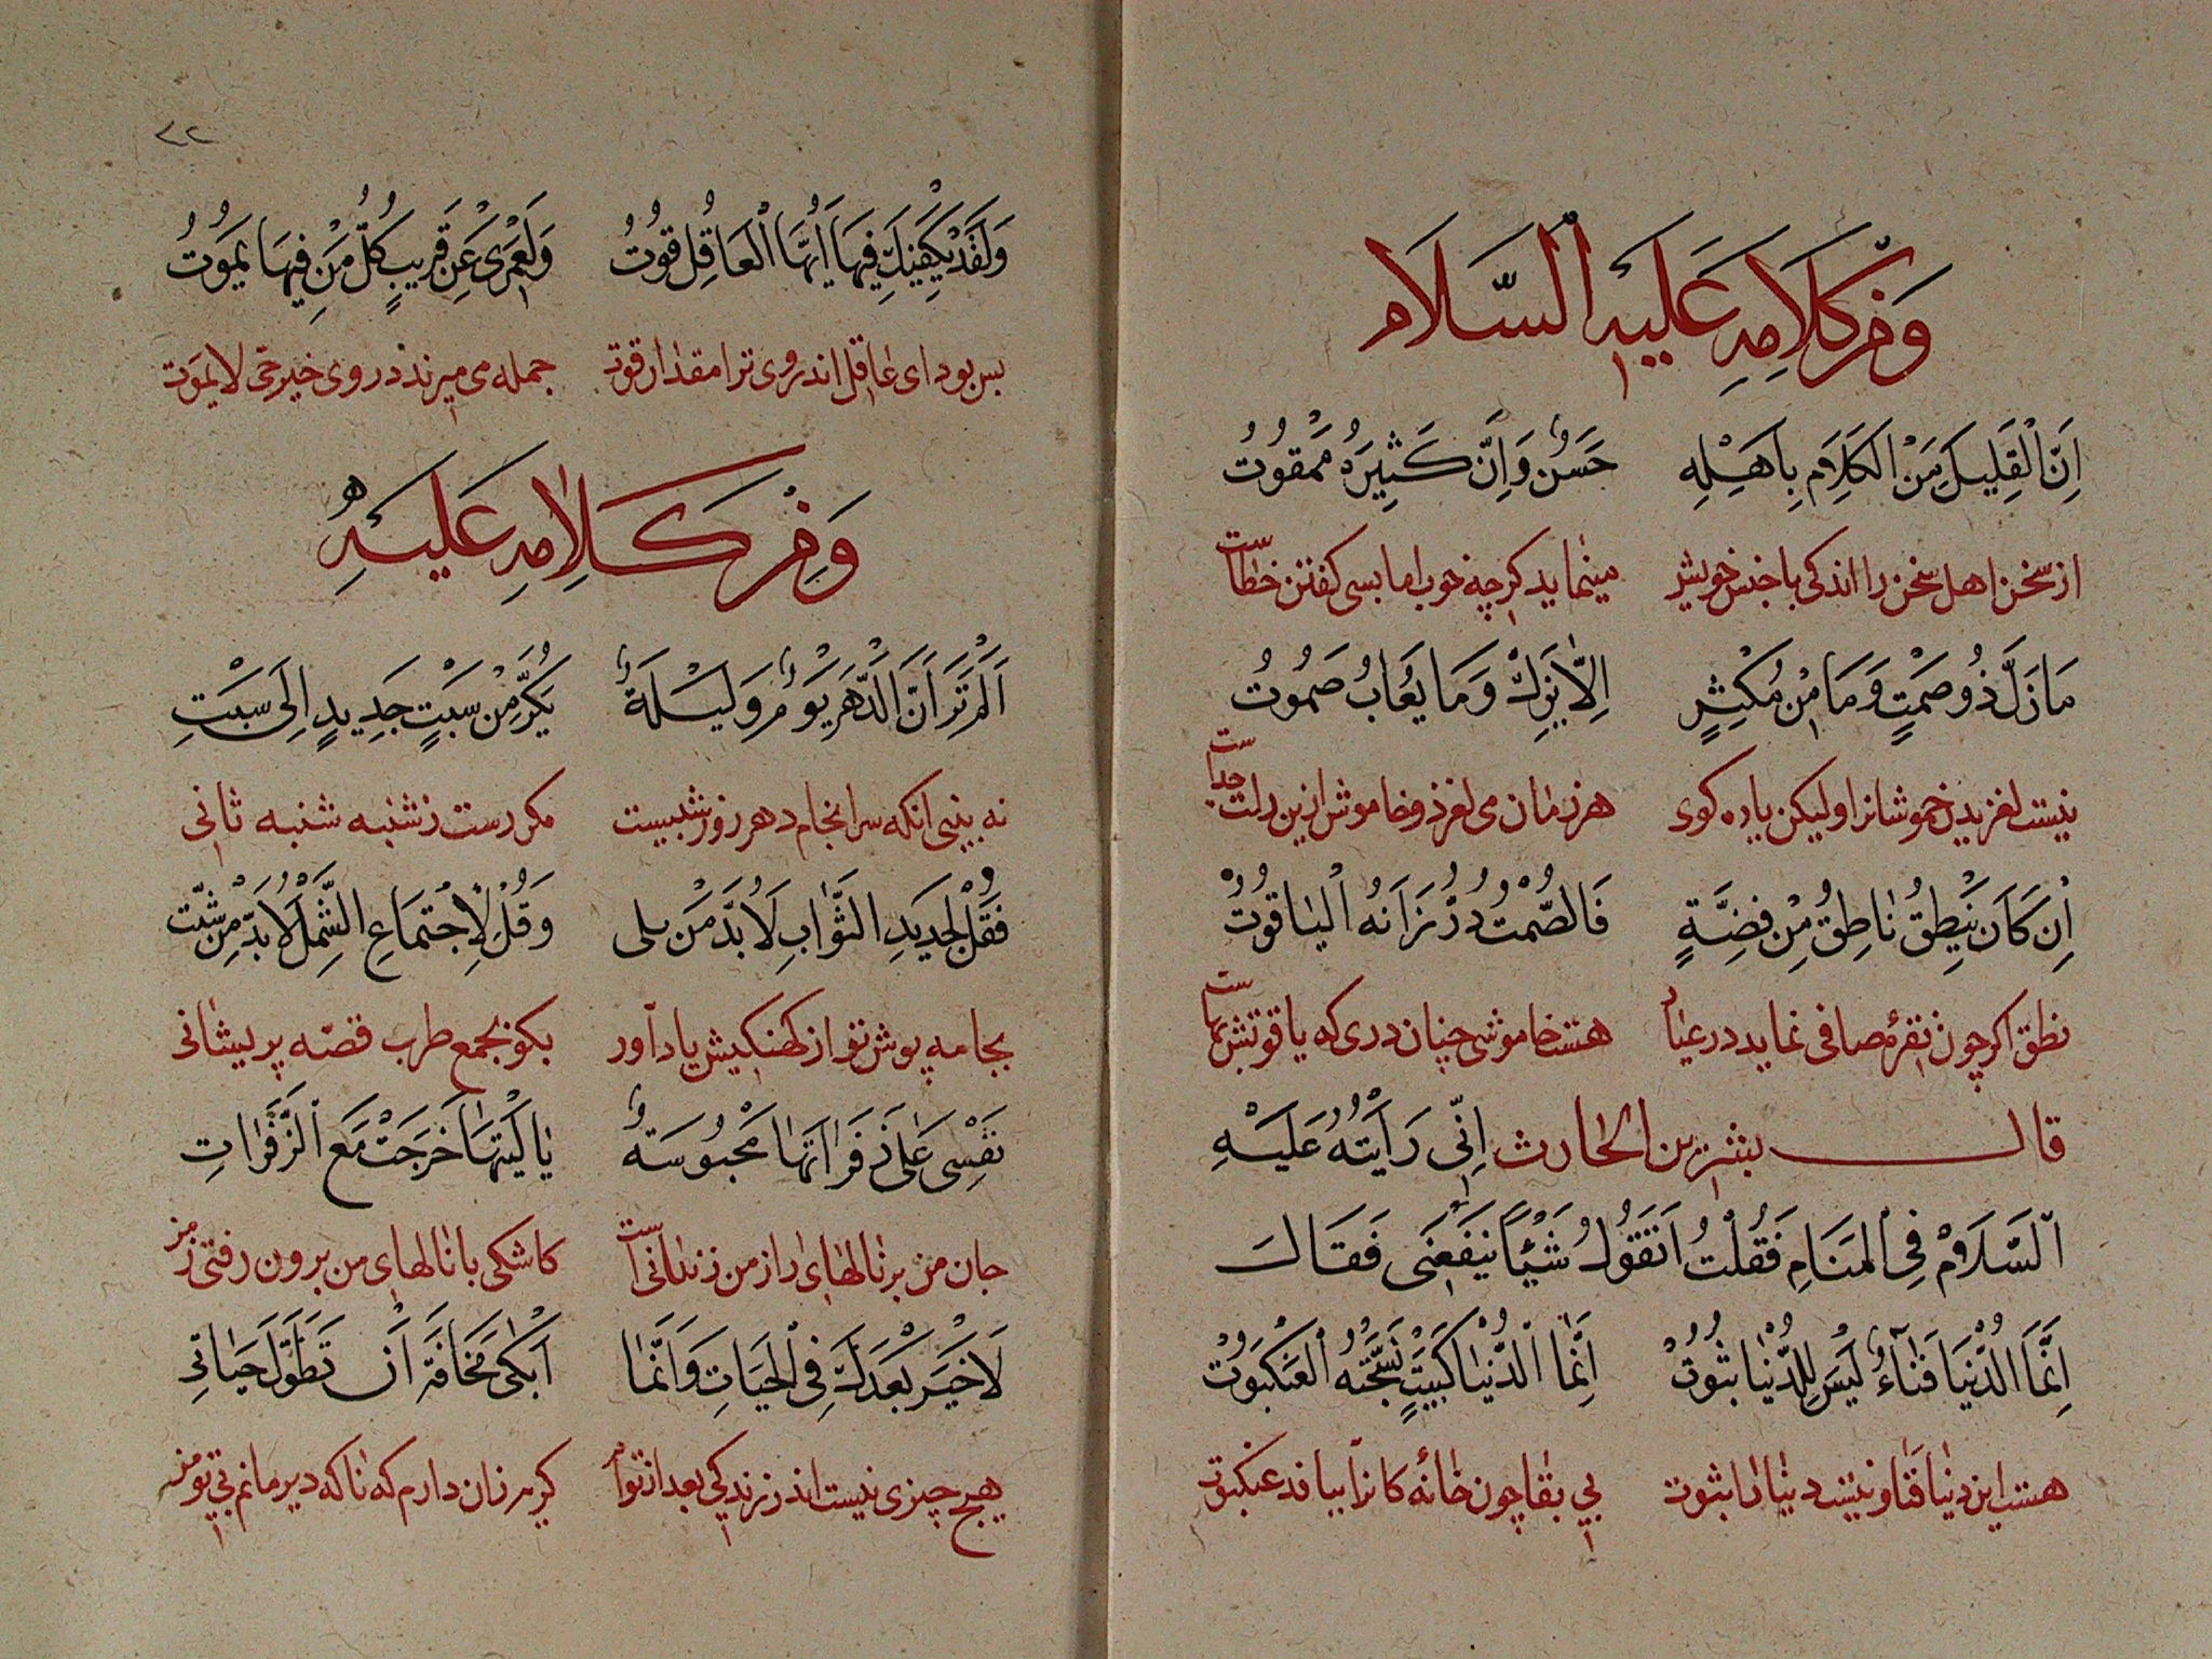 وَمِنْ كَلَامِهِ عَلَيْهِ السَّلَام
اِنَّ الْقَلِيلَ مِنَ الْكَلَامِ بِاَهْلِهِ حَسَنٌ وَاِنَّ كَثِيرَهُ مَمْقُوتُ
از سخن اهل سخن را اندکی با جنس خویش مینماید کرچه خوب اما بسی کفتن خطاست
مَا زَلَّ ذُو صَمْتٍ وَمَا مِنْ مُكْثِرٍ اِلَّا يَزِلُّ وَمَا يُعَابُ صَمُوتُ
نیست لغزیدن خموشانرا ولیکن یاده کوی هر زمان می لغزد و خاموش ازین زلت جداست
اِنْ كَانَ يَنْطِقُ نَاطِقٌ مِنْ فِضَّةٍ فَالصَّمْتُ دُرٌّ زَانَهُ الْيَاقُوتُ
نطق اکر چون نقرهٔ صافی نماید در عیار هست خاموشی چنان دری که یاقوتش بهاست
قال بشر بن الحارث اِنِّى رَاَيْتُهُ عَلَيْهِ
السَّلَامْ فِى الْمَنَامِ فَقُلْتُ اَتَقُولُ شَيْئًا يَنْفَعُنِى فَقَالَ
اِنَّمَا الدُّنْيَا فَنَاءٌ لَيْسَ لِلدُّنْيَا ثُبُوتُ اِنَّمَا الدُّنْيَا كَبَيْتٍ نَسَجَتْهُ الْعَنْكَبُوتُ
هست این دنیا فنا و نیست دنیا را ثبوت بی بقا چون خانه کانرا ببافد عنکبوت
٢٢
وَلَقَدْ يَكْفِيكَ فِيهَا اَيُّهَا الْعَاقِلُ قُوتُ وَلَعَمْرِى عَنْ قَرِيبٍ كُلُّ مَنْ فِيهَا يَمُوتُ
بس بود ای عاقل اندر وی ترا مقدار قوت جمله می میرند در وی خیر حی لایموت
وَمِنْ كَلَامِهِ عَلَيْهِ
اَلَمْ تَرَ اَنَّ الدَّهْرَ يَوْمٌ وَلَيْلَةٌ يَكُرُّ مِنْ سَبْتٍ جَدِيدٍ اِلَى سَبْتِ
نه بینی انکه سرانجام دهر روز شبیست مکررست ز شنبه شنبه ثانی
فَقُلْ لِجَدِيدِ الثَّوَابِ لَا بُدَّ مِنْ بلى وَقُلْ لِاجْتِمَاعِ الشَّمْلِ لَا بُدَّ مِنْ شَتّ
بجامه پوش نو از کهنکیش یاد آور بکو بجمع طرب قصّه پریشانی
نَفْسِى عَلَى زَفَرَاتِهَا مَحْبُوسَةٌ يَا لَيْتَهَا خَرَجَتْ مَعَ الزَّفَرَاتِ
جان من بر نالهای زار من زندانی است کاشکی با نالهای من برون رفتی ز من
لَا خَيْرَ بَعْدَكَ فِى الْحَيَاتِ وَاِنَّمَا اَبْكِى مَخَافَةَ اَنْ تَطَوَّلَ حَيَاتِى
هیچ چیزی نیست اندر زندکی بعد از تو کریه زان دارم که ناکه دیر مانم بی تو من